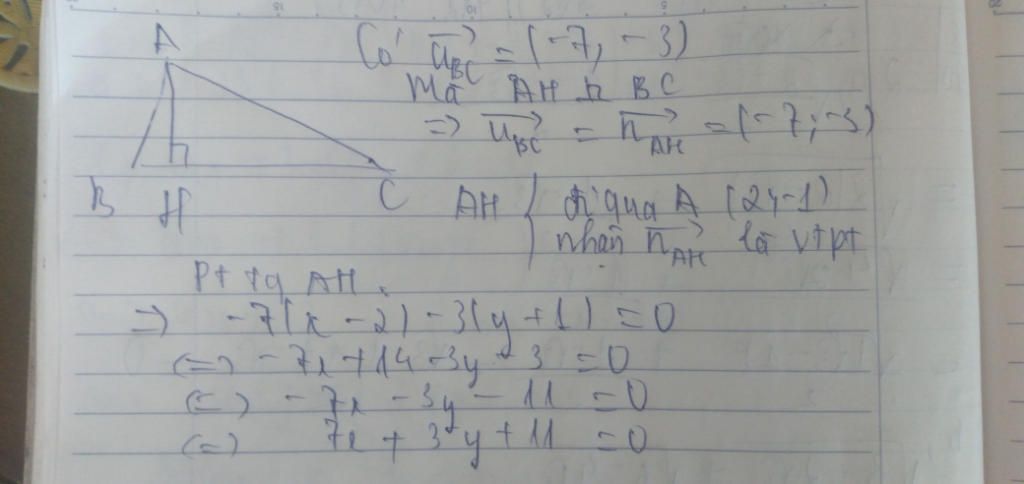 A
B H C
Có $\overrightarrow{u_{BC}}$ = (-7, -3)
Mà AH ⊥ BC
=> $\overrightarrow{u_{BC}}$ = $\overrightarrow{n_{AH}}$ = (-7; -3)
AH { đi qua A (2; -1)
nhận $\overrightarrow{n_{AH}}$ là vtpt
Pt tq AH.
=> -7(x - 2) - 3(y + 1) = 0
(=) -7x + 14 - 3y - 3 = 0
(=) -7x - 3y - 11 = 0
(=) 7x + 3y + 11 = 0